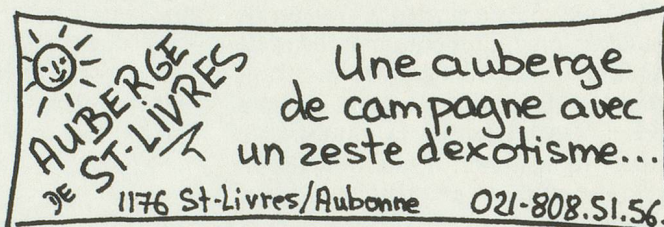 AUBERGE
DE ST-LIVRES
Une auberge
de campagne avec
un zeste d'exotisme...
1176 St-Livres/Aubonne 021-808.51.56.